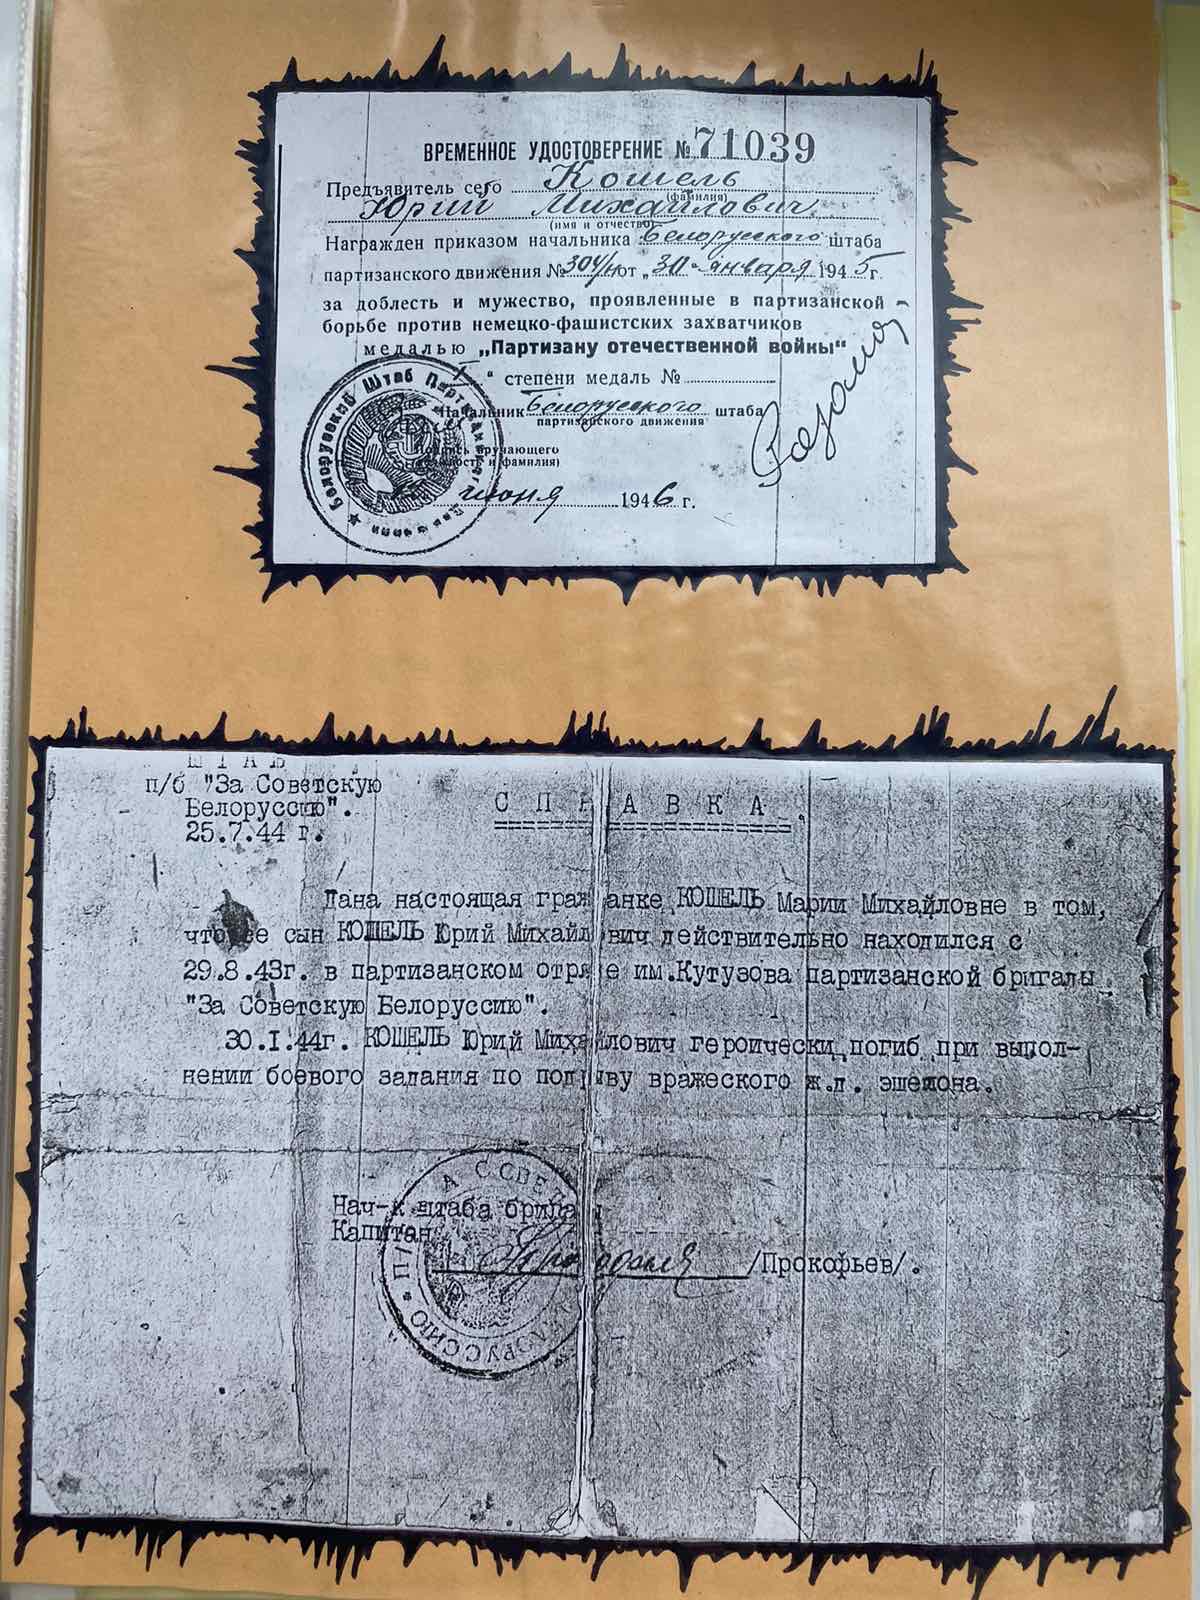 ВРЕМЕННОЕ УДОСТОВЕРЕНИЕ № 71039
Предъявитель сего Кошель
(фамилия)
Юрий Михайлович
(имя и отчество)
Награжден приказом начальника Белорусского штаба
партизанского движения № 304/н от „30" января 1945 г.
за доблесть и мужество, проявленные в партизанской
борьбе против немецко-фашистских захватчиков
медалью „Партизану отечественной войны"
" степени медаль №
Начальник Белорусского штаба
партизанского движения
Подпись вручающего
и фамилия)
июня 1946 г.
Белорусский Штаб Партизанского Движения
ШТАБ
п/б "За Советскую
Белоруссию".
25.7.44 г.
СПРАВКА.
Дана настоящая гражданке КОШЕЛЬ Марии Михайловне в том,
что ее сын КОШЕЛЬ Юрий Михайлович действительно находился с
29.8.43г. в партизанском отряде им.Кутузова партизанской бригады
"За Советскую Белоруссию".
30.I.44г. КОШЕЛЬ Юрий Михайлович героически погиб при выпол-
нении боевого задания по подрыву вражеского ж.д. эшелона.
Нач-к штаба бригады
Капитан
/Прокофьев/.